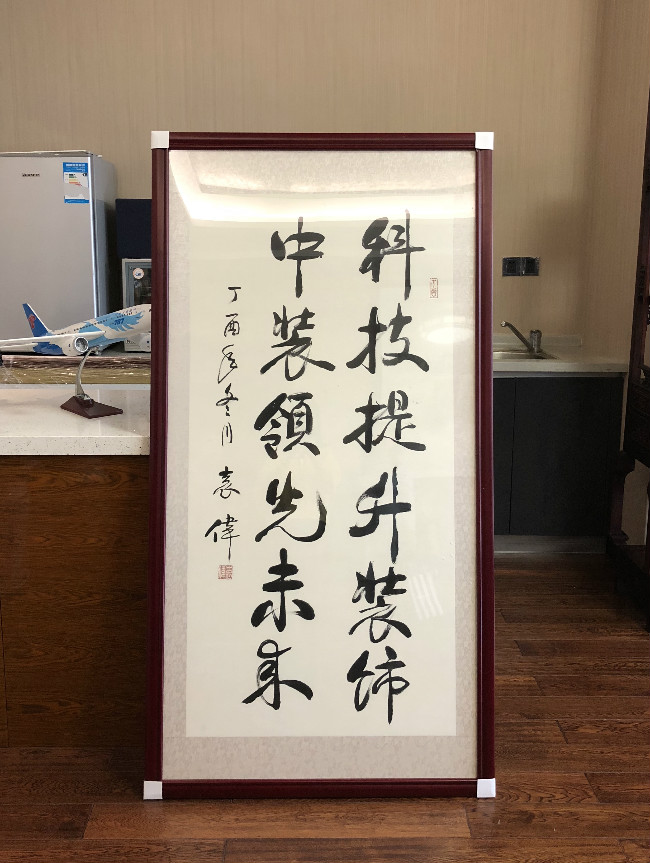 科技提升装饰
中装領先未来
丁酉年冬月 袁偉
787